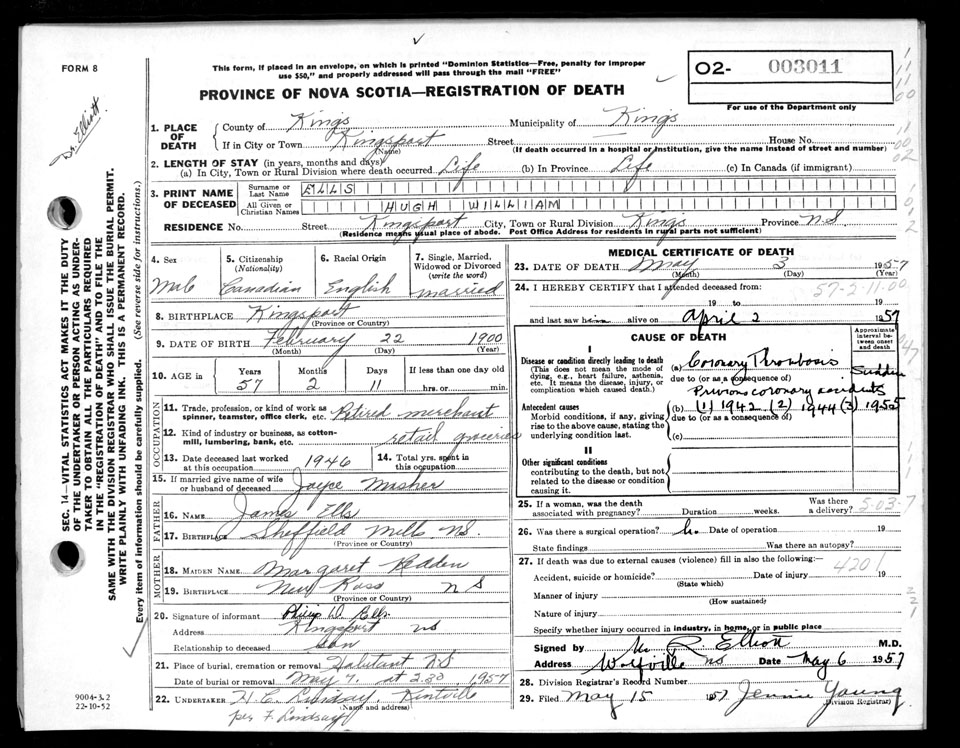 FORM 8
Dr. Elliott.
This form, if placed in an envelope, on which is printed "Dominion Statistics—Free, penalty for improper
use $50," and properly addressed will pass through the mail "FREE"
O2- 003011
For use of the Department only
PROVINCE OF NOVA SCOTIA—REGISTRATION OF DEATH
1. PLACE OF DEATH
County of Kings Municipality of Kings
If in City or Town Kingsport Street House No.
(Name) (If death occurred in a hospital or institution, give the name instead of street and number)
2. LENGTH OF STAY (in years, months and days)
(a) In City, Town or Rural Division where death occurred Life (b) In Province Life (c) In Canada (if immigrant)
3. PRINT NAME OF DECEASED
Surname or Last Name ELLS
All Given or Christian Names HUGH WILLIAM
RESIDENCE No. Street Kingsport City, Town or Rural Division Kings Province N.S
(Residence means usual place of abode. Post Office Address for residents in rural parts not sufficient)
SEC. 14—VITAL STATISTICS ACT MAKES IT THE DUTY
OF THE UNDERTAKER OR PERSON ACTING AS UNDER-
TAKER TO OBTAIN ALL THE PARTICULARS REQUIRED
IN THE "REGISTRATION OF DEATH" AND TO FILE THE
SAME WITH THE DIVISION REGISTRAR WHO SHALL ISSUE THE BURIAL PERMIT.
WRITE PLAINLY WITH UNFADING INK. THIS IS A PERMANENT RECORD.
Every item of information should be carefully supplied. (See reverse side for instructions.)
4. Sex
Male
5. Citizenship
(Nationality)
Canadian
6. Racial Origin
English
7. Single, Married,
Widowed or Divorced
(write the word)
married
8. BIRTHPLACE Kingsport
(Province or Country)
9. DATE OF BIRTH February 22 1900
(Month) (Day) (Year)
10. AGE in Years Months Days If less than one day old
57 2 11 hrs. or min.
OCCUPATION
11. Trade, profession, or kind of work as
spinner, teamster, office clerk, etc. Retired merchant
12. Kind of industry or business, as cotton-
mill, lumbering, bank, etc. retail groceries
13. Date deceased last worked
at this occupation 1946
14. Total yrs. spent in
this occupation
15. If married give name of wife
or husband of deceased Joyce Mosher
FATHER
16. NAME James Ells
17. BIRTHPLACE Sheffield Mills N.S.
(Province or Country)
MOTHER
18. MAIDEN NAME Margaret Redden
19. BIRTHPLACE New Ross N S
(Province or Country)
20. Signature of informant Philip W. Ells
Address Kingsport NS
Relationship to deceased son
21. Place of burial, cremation or removal Habitant N.S
Date of burial or removal May 7, at 2.30 1957
22. UNDERTAKER H. C. Lindsay, Kentville
(Name and address)
per F. Lindsay
9004-3.2
22-10-52
MEDICAL CERTIFICATE OF DEATH
23. DATE OF DEATH May 3 1957
(Month) (Day) (Year)
24. I HEREBY CERTIFY that I attended deceased from:
57-2-11-00
19 to 19
and last saw him alive on April 2 1957
CAUSE OF DEATH
Approximate
interval be-
tween onset
and death
I
Disease or condition directly leading to death
(This does not mean the mode of
dying, e.g., heart failure, asthenia,
etc. It means the disease, injury, or
complication which caused death.)
(a) Coronary Thrombosis Sudden
due to (or as a consequence of)
Previous coronary accidents
Antecedent causes
Morbid conditions, if any, giving
rise to the above cause, stating the
underlying condition last.
(b) (1) 1942 (2) 1944 (3) 1955
due to (or as a consequence of)
(c)
II
Other significant conditions
contributing to the death, but not
related to the disease or condition
causing it.
25. If a woman, was the death
associated with pregnancy? Duration weeks. Was there
a delivery?
5-03-7
26. Was there a surgical operation? No Date of operation 19
State findings Was there an autopsy?
27. If death was due to external causes (violence) fill in also the following:—
4201
Accident, suicide or homicide? Date of injury 19
(State which)
Manner of injury
(How sustained)
Nature of injury
Specify whether injury occurred in industry, in home, or in public place
Signed by R. Elliott M.D.
Address Wolfville NS Date May 6 1957
28. Division Registrar's Record Number
29. Filed May 15 1957 Jennie Young
(Division Registrar)